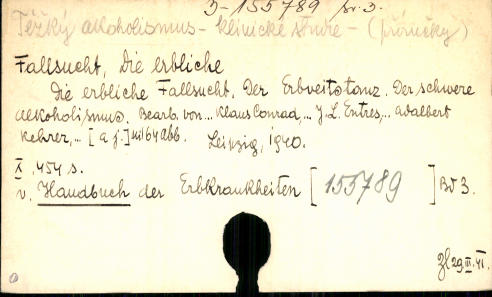 3-155789 sv. 3.
Těžký alkoholismus - klinické studie - (příručky)
Fallsucht, Die erbliche
Die erbliche Fallsucht. Der Erbveitstanz. Der schwere
Alkoholismus. Bearb. von... Klaus Conrad,... J. L. Entres,... Adalbert
Kehrer,... [a j.] mit 64 Abb. Leipzig, 1940.
X, 454 s.
v. Handbuch der Erbkrankheiten [155789] Bd 3.
Zl 29.III.41.